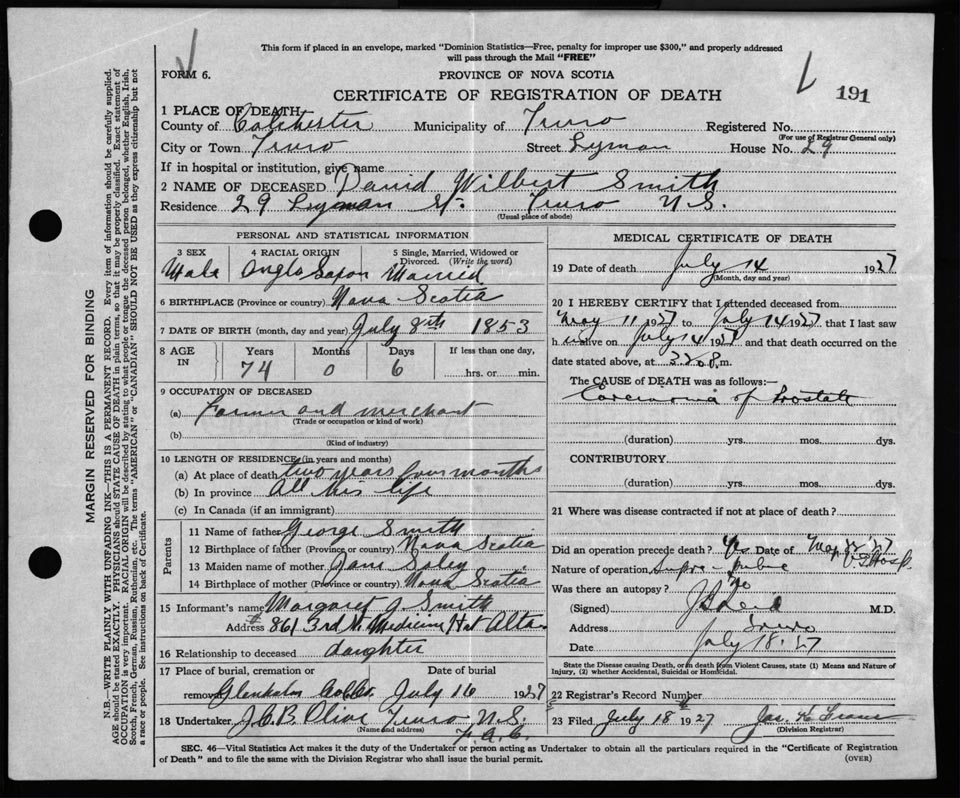 This form if placed in an envelope, marked "Dominion Statistics—Free, penalty for improper use $300," and properly addressed
will pass through the Mail "FREE"
FORM 6.
PROVINCE OF NOVA SCOTIA
CERTIFICATE OF REGISTRATION OF DEATH
191
1 PLACE OF DEATH:
County of Colchester Municipality of Truro Registered No.
(For use of Registrar General only)
City or Town Truro Street Lyman House No. 29
If in hospital or institution, give name
2 NAME OF DECEASED David Wilbert Smith
Residence 29 Lyman St. Truro N.S.
(Usual place of abode)
PERSONAL AND STATISTICAL INFORMATION
3 SEX 4 RACIAL ORIGIN 5 Single, Married, Widowed or Divorced. (Write the word)
Male Anglo Saxon Married
6 BIRTHPLACE (Province or country) Nova Scotia
7 DATE OF BIRTH (month, day and year) July 8th 1853
8 AGE IN Years Months Days If less than one day,
74 0 6 hrs. or min.
9 OCCUPATION OF DECEASED
(a) Farmer and merchant
(Trade or occupation or kind of work)
(b)
(Kind of industry)
10 LENGTH OF RESIDENCE (in years and months)
(a) At place of death two years four months
(b) In province All his life
(c) In Canada (if an immigrant)
Parents
11 Name of father George Smith
12 Birthplace of father (Province or country) Nova Scotia
13 Maiden name of mother Jane
14 Birthplace of mother (Province or country) Nova Scotia
15 Informant's name Margaret J. Smith
Address # 861 3rd St. Medicine Hat Alta
16 Relationship to deceased daughter
17 Place of burial, cremation or Date of burial
removal Col Co. July 16 1927
18 Undertaker J.C.B. Olive Truro N.S.
(Name and address)
MEDICAL CERTIFICATE OF DEATH
19 Date of death July 14 1927
(Month, day and year)
20 I HEREBY CERTIFY that I attended deceased from
May 11 1927 to July 14 1927 that I last saw
h im alive on July 14 1927 and that death occurred on the
date stated above, at m.
The CAUSE of DEATH was as follows:—
Carcinoma of Prostate
(duration) yrs. mos. dys.
CONTRIBUTORY
(duration) yrs. mos. dys.
21 Where was disease contracted if not at place of death?
Did an operation precede death? Yes Date of May 27
Nature of operation Supra-pubic
Was there an autopsy? No
(Signed) M.D.
Address Truro
Date July 18. 27
State the Disease causing Death, or in death from Violent Causes, state (1) Means and Nature of
Injury, (2) whether Accidental, Suicidal or Homicidal.
22 Registrar's Record Number
23 Filed July 18 1927
(Division Registrar)
SEC. 46—Vital Statistics Act makes it the duty of the Undertaker or person acting as Undertaker to obtain all the particulars required in the "Certificate of Registration
of Death" and to file the same with the Division Registrar who shall issue the burial permit.
(OVER)
MARGIN RESERVED FOR BINDING
N.B.—WRITE PLAINLY WITH UNFADING INK—THIS IS A PERMANENT RECORD. Every item of information should be carefully supplied.
AGE should be stated EXACTLY. PHYSICIANS should STATE CAUSE OF DEATH in plain terms, so that it may be properly classified. Exact statement of
OCCUPATION is very important. RACIAL ORIGIN will be described by stating to what people or tongue the deceased person belonged, whether English, Irish,
Scotch, French, German, Russian, Ruthenian, etc. The terms "AMERICAN" or "CANADIAN" SHOULD NOT BE USED as they express citizenship but not
a race or people. See instructions on back of Certificate.